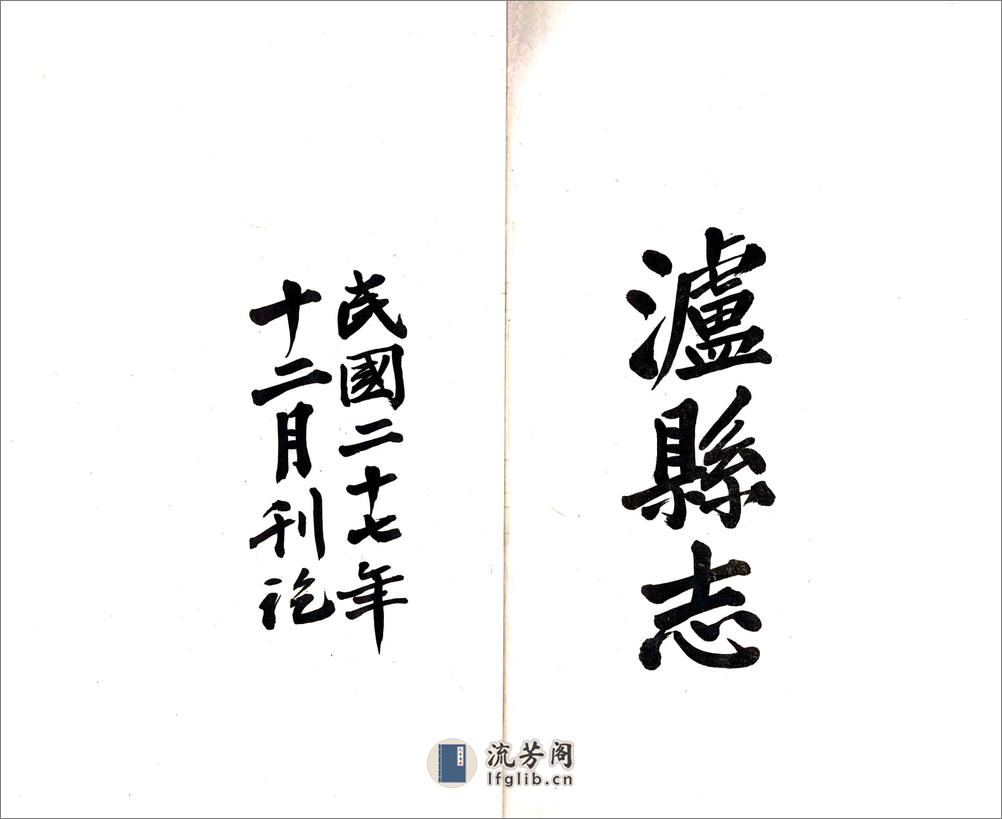 瀘縣志
民國二十七年
十二月刊訖
流芳阁
lfglib.cn